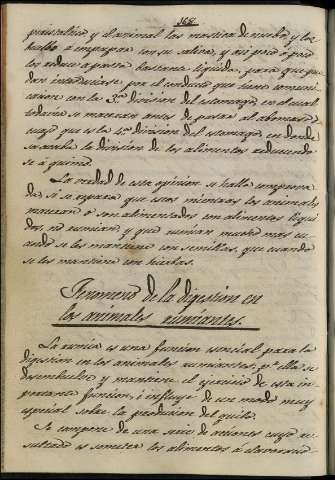 368
peristaltico y el animal los mastica de nuebo, y los
buelbe á empapar con su saliva, y así poco á poco
los reduce a pasta bastante liquida, para que pue
dan introducirse por el conducto que tiene comuni
cacion con la 3.ª division del estomago en el cual
todavia se maceran antes de pasar al abomaso o
cuajo que es la 4.ª division del estomago en donde
se acaba la division de los alimentos reduciendo
se á quimo.
La verdad de esta opinion se halla comprueva
da, si se repara que estos mientras los animales
maman ó son alimentados con alimentos liqui
dos, no rumian, y que rumian mucho mas cu
ando se les mantiene con semillas, que cuando
se les mantiene con hierbas.
Fenomeno de la digestion en
los animales rumiantes.
La rumia es una funcion esencial para la
digestion en los animales rumiantes, p.r ella se
desembuelve y mantiene el egercicio de esta im
portante funcion, é influye de un modo muy
especial sobre la produccion del quilo.
Se compone de una serie de acciones cuyo re
sultado es someter los alimentos á